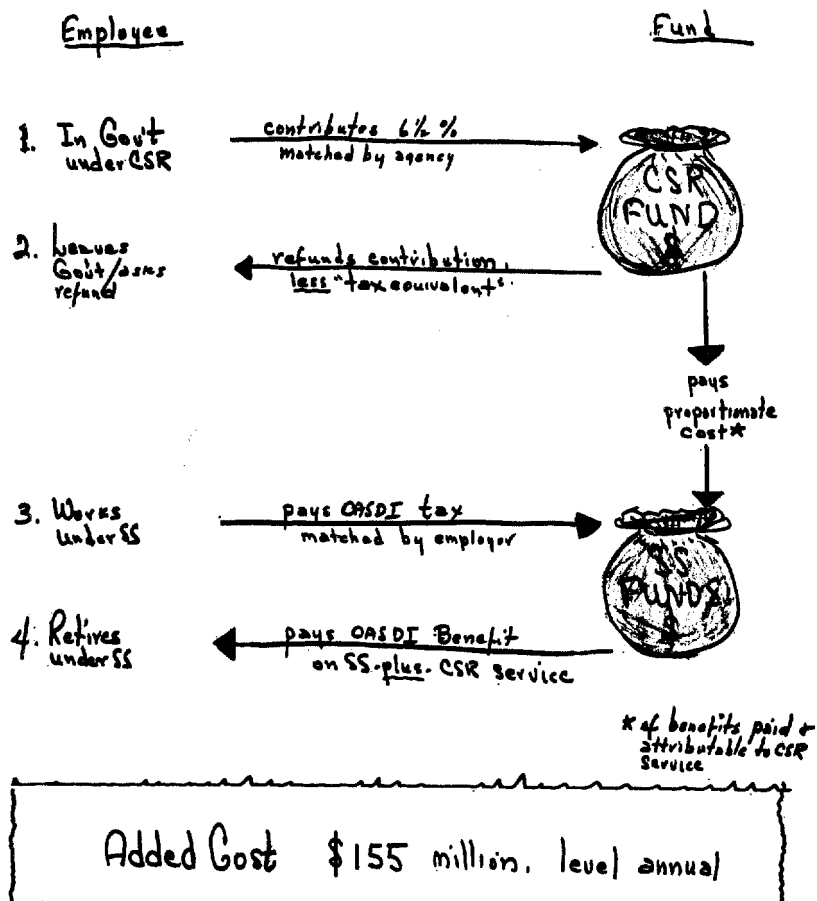 Employee
Fund
1. In Gov't
under CSR
contributes 6½ %
matched by agency
CSR
FUND
$
2. Leaves
Gov't/asks
refund
refunds contribution,
less "tax equivalent".
pays
proportionate
cost*
3. Works
under SS
pays OASDI tax
matched by employer
SS
FUNDS
$
4. Retires
under SS
pays OASDI Benefit
on SS-plus-CSR service
* of benefits paid &
attributable to CSR
service
Added Cost $155 million, level annual